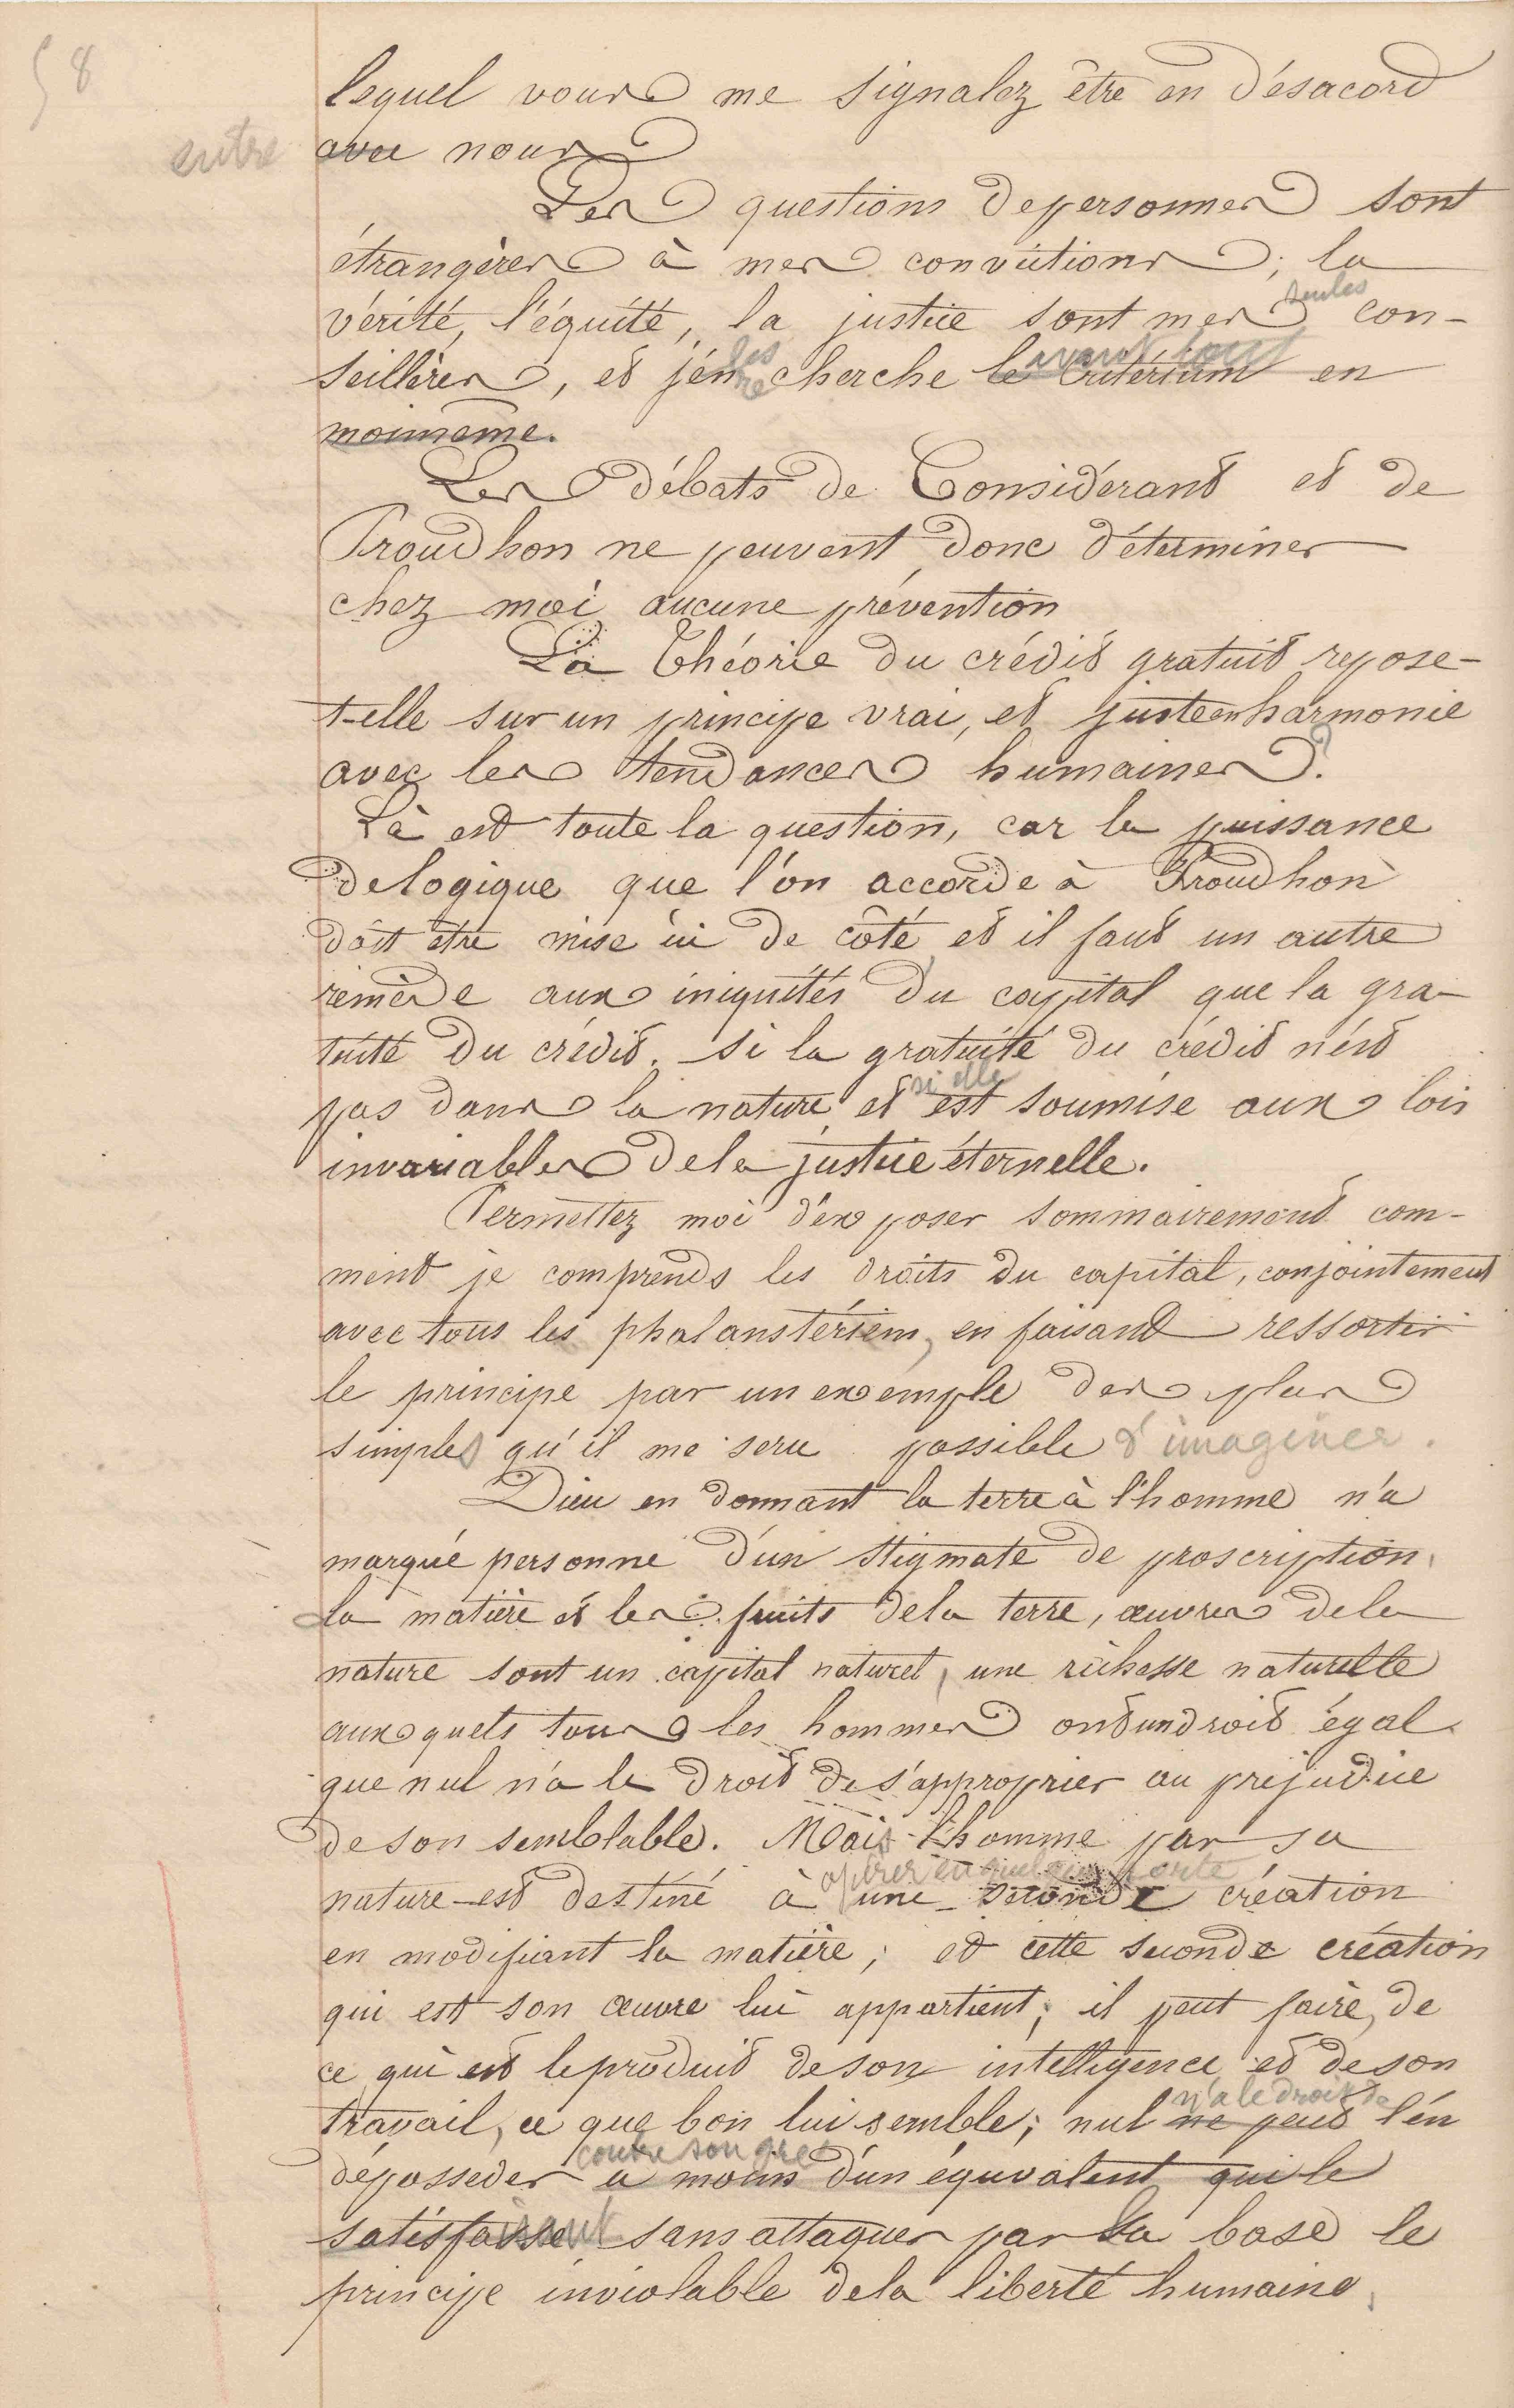 58
lequel vous me signalez être en désacord
entre avec nous
Les questions de personnes sont
étrangères à mes convictions ; la
vérité, l'équité, la justice sont mes seules con-
seillères, et j'en les cherche le critérium avant tout en
moimême.
Les débats de Considérant et de
Proudhon ne peuvent donc déterminer
chez moi aucune prévention
La Théorie du crédit gratuit repose-
t-elle sur un principe vrai, et juste en harmonie
avec les tendances humaines ?
Là est toute la question, car la puissance
de logique que l'on accorde à Proudhon
doit être mise ici de côté et il faut un autre
remède aux iniquités du capital que la gra-
tuité du crédit, si la gratuité du crédit n'est
pas dans la nature et si elle est soumise aux lois
invariables de la justice éternelle.
Permettez moi d'exposer sommairement com-
ment je comprends les droits du capital, conjointement
avec tous les phalanstériens, en faisant ressortir
le principe par un exemple des plus
simples qu'il me sera possible d'imaginer.
Dieu en donnant la terre à l'homme n'a
marqué personne d'un stigmate de proscription.
la matière et les fruits de la terre, œuvres de la
nature sont un capital naturel, une richesse naturelle
auxquels tous les hommes ont un droit égal
que nul n'a le droit de s'approprier au préjudice
de son semblable. Mais l'homme par sa
nature est destiné à opérer en quelque sorte une seconde création
en modifiant la matière ; et cette seconde création
qui est son œuvre lui appartient ; il peut faire, de
ce qui est le produit de son intelligence et de son
travail, ce que bon lui semble ; nul ne peut n'a le droit de l'en
déposséder contre son gré à moins d'un équivalent qui le
satisfasse sans attaquer par la base le
principe inviolable de la liberté humaine.